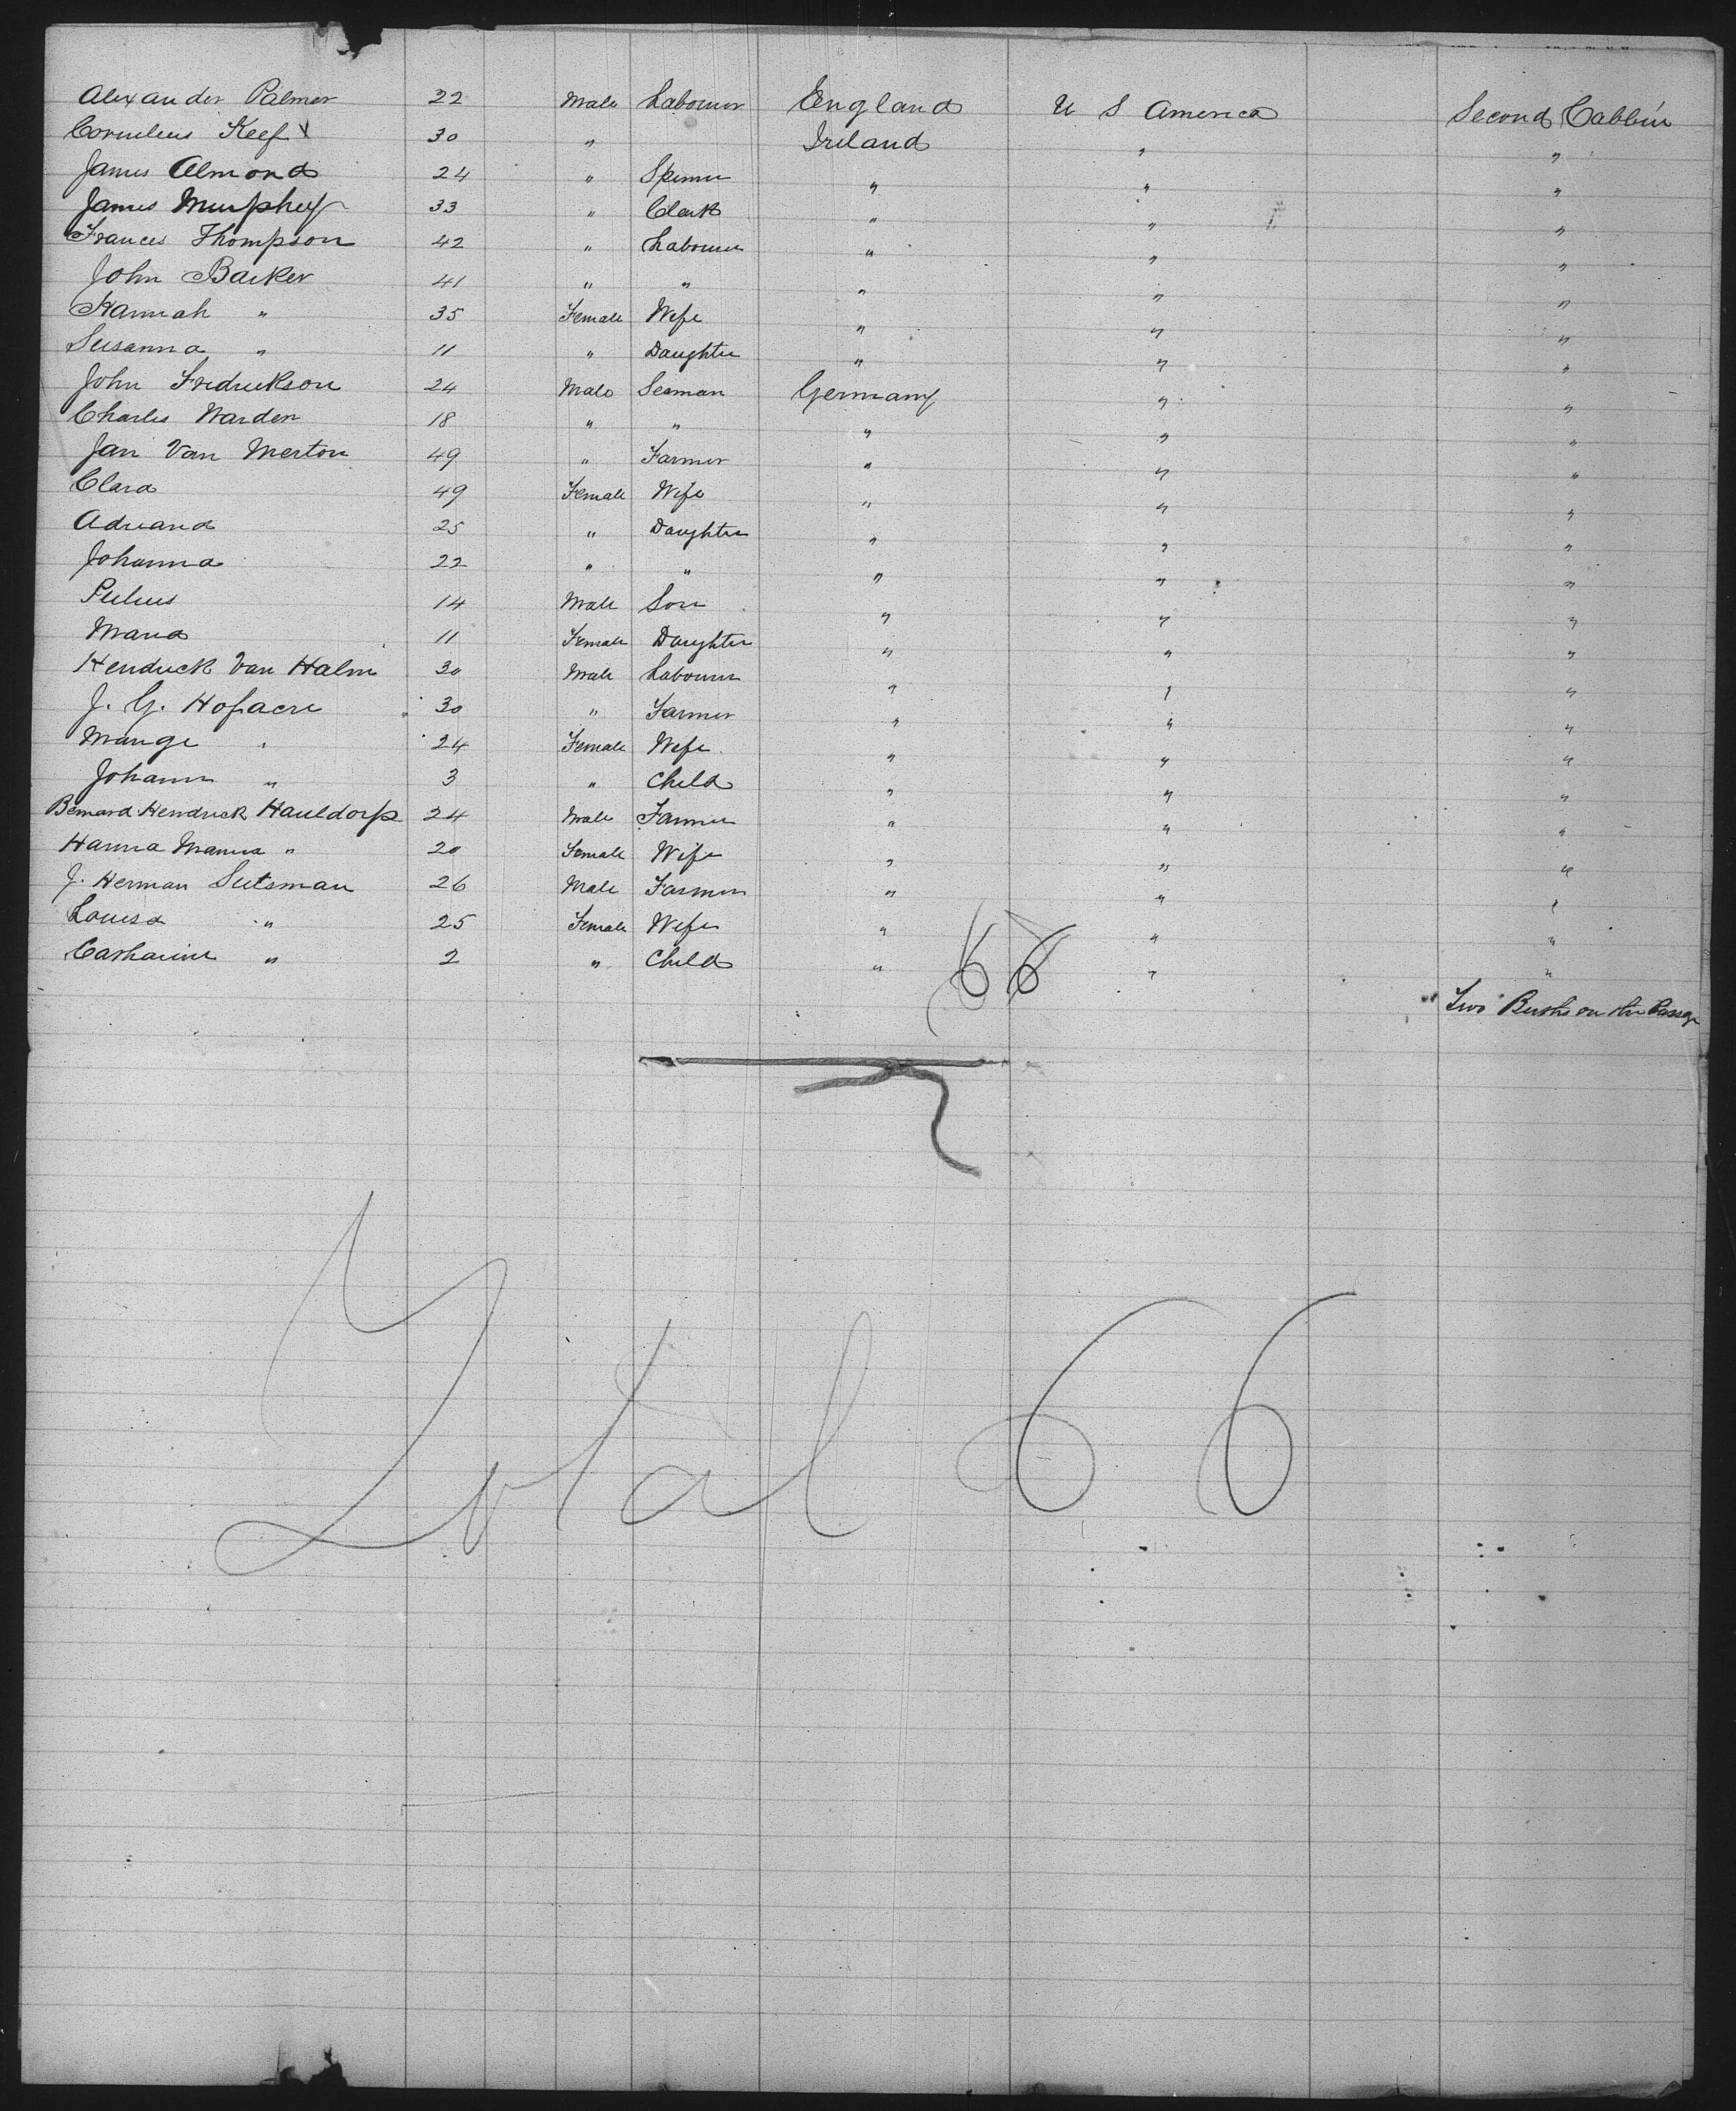 Alexander Palmer 22 Male Labourer England U S America Second Cabbin
Cornelius Keef 30 " Ireland " "
James Almond 24 " Spinner " " "
James Murphey 33 " Clerk " " "
Frances Thompson 42 " Labourer " " "
John Barker 41 " " " " "
Hannah " 35 Female Wife " " "
Susanna " 11 " Daughter " " "
John Fredrickson 24 Male Seaman Germany " "
Charles Warden 18 " " " " "
Jan Van Merton 49 " Farmer " " "
Clara 49 Female Wife " " "
Adriana 25 " Daughter " " "
Johanna 22 " " " " "
14 Male Son " " "
Maria 11 Female Daughter " " "
Hendrick Van Halm 30 Male Labourer " " "
J. G. Hofacre 30 " Farmer " " "
" 24 Female Wife " " "
Johann " 3 " Child " " "
Bernard Hendrick Hauldorp 24 Male Farmer " " "
Hanna " 20 Female Wife " " "
J. Herman Sutsman 26 Male Farmer " " "
Louisa " 25 Female Wife " " "
Catharine " 2 " Child " " "
66
Two Births on the Passage
Total 66